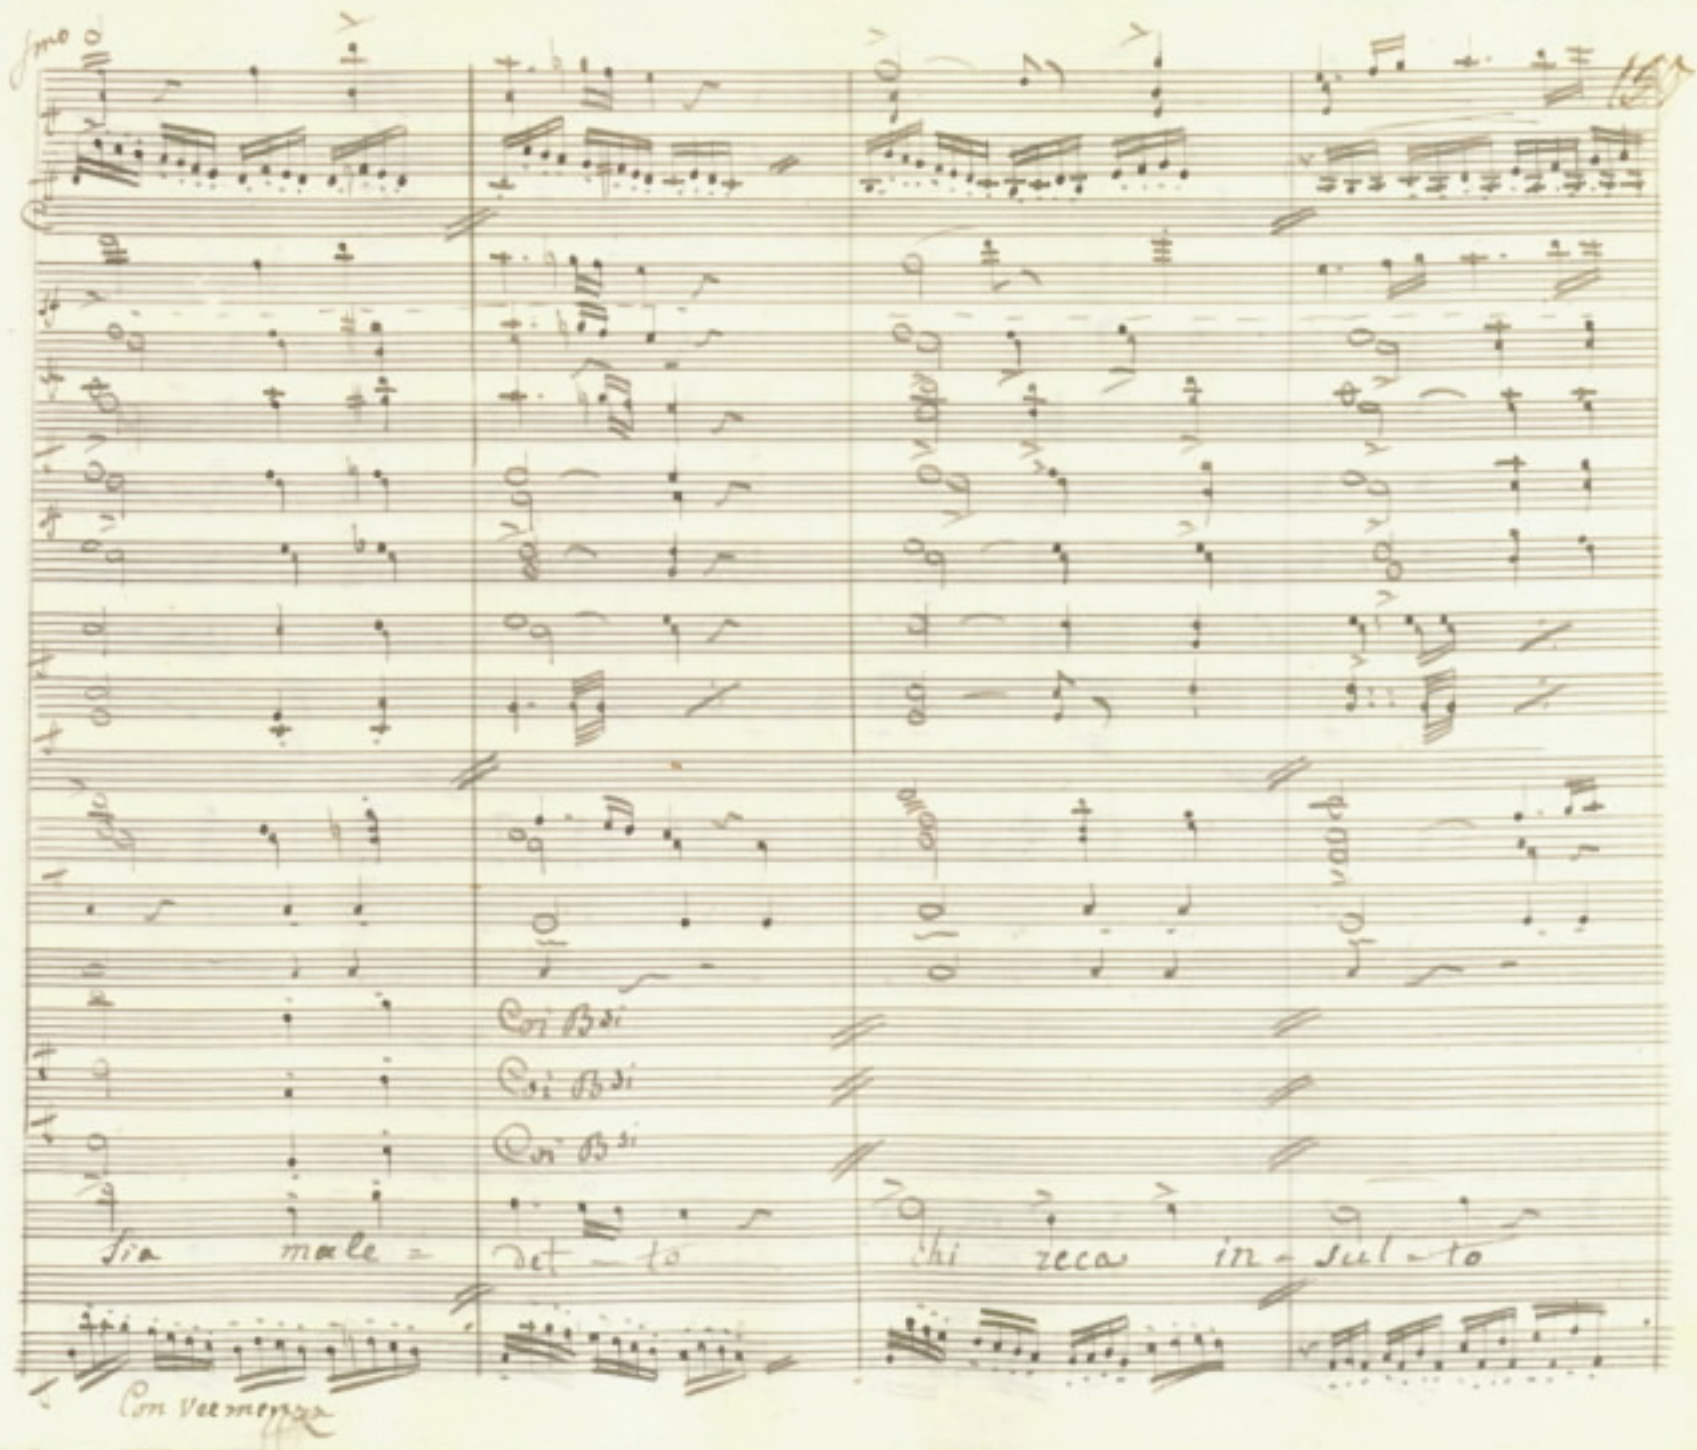 fmo
150
Coi Bsi
Coi Bsi
Coi Bsi
sia male = det - to chi reca in - sul - to
Con veemenza